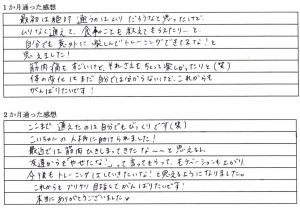 1か月通った感想
最初は絶対通うのはムリだろうなと思ったけど
ムリなく通えて、食事のことも教えてもらえたりーと
自分でも意外に楽しんでトレーニングできてるな!と
思えました!
筋肉痛もすごいけど、それさえもちょっと楽しかったりと(笑)
体の変化はまだ自分では分からないけど、これからも
がんばりたいです!
2か月通った感想
ここまで通えたのは自分でもびっくりです(笑)
こいちゃんの人柄に助けられました!
最近では筋肉ひきしまってきたな〜〜と思えるし
友達からも「やせたな!」って言ってもらって、モチベーションも上がり
今後もトレーニングはしていきたいな!と思えるようになりました。
これからもプリケツ目指してがんばりたいです!
本当にありがとうございました♥